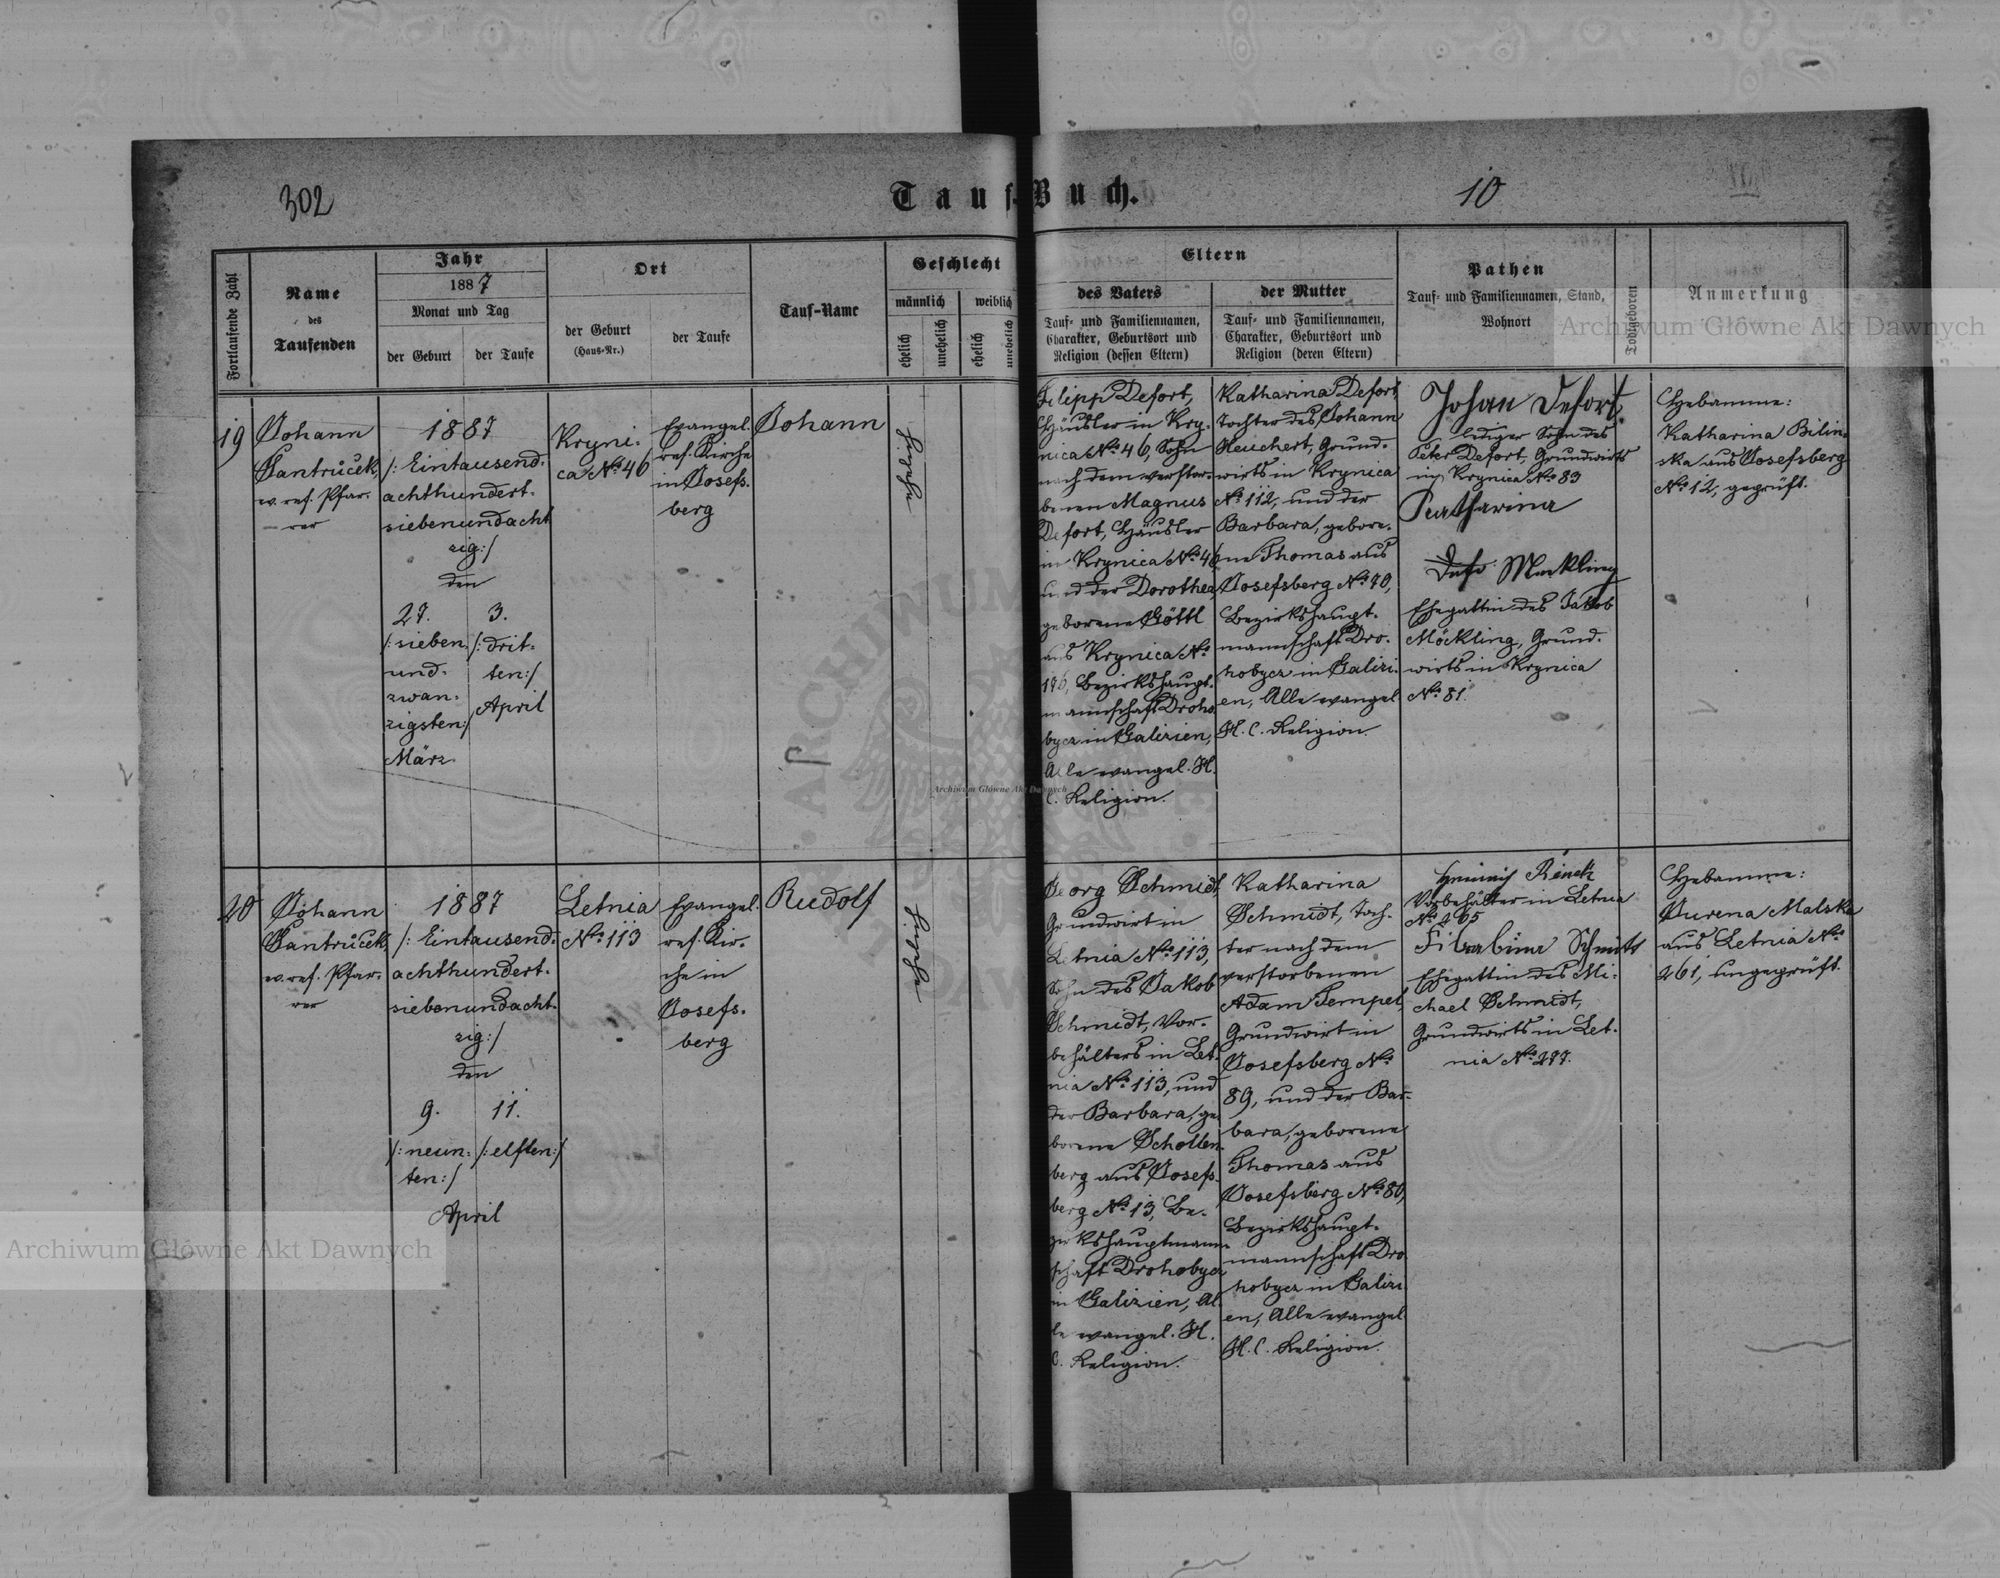 302
Tauf-Buch.
10
Fortlaufende Zahl
Name
des
Taufenden
Jahr
1887
Monat und Tag
der Geburt
der Taufe
Ort
der Geburt
(Haus-Nr.)
der Taufe
Tauf-Name
Geschlecht
männlich
weiblich
ehelich
unehelich
ehelich
unehelich
Eltern
des Vaters
Tauf- und Familiennamen,
Charakter, Geburtsort und
Religion (dessen Eltern)
der Mutter
Tauf- und Familiennamen,
Charakter, Geburtsort und
Religion (deren Eltern)
Pathen
Tauf- und Familiennamen, Stand,
Wohnort
Todtgeboren
Anmerkung
19
Johann
Jantrůček,
ev. ref. Pfar-
rer
1887
/: Eintausend-
achthundert-
siebenundacht
zig:/
den
27.
/: sieben
und-
zwan-
zigsten:/
März
3.
/: drit-
ten:/
April
Kryni-
ca No. 46
Evangel.
ref. Kirche
in Josefs-
berg
Johann
Filipp Defort,
Häusler in Kry-
nica No. 46, Sohn
nach dem verstor-
benen Magnus
Defort, Häusler
in Krynica No. 46
und der Dorothea
geborene Göttl
aus Krynica No.
196, Bezirkshaupt-
mannschaft Droho-
bycz in Galizien,
Alle evangel. H.
C. Religion.
Katharina Defort
Tochter des Johann
Heuchert, Grund-
wirts in Krynica
No. 112, und der
Barbara, gebore-
ne Thomas aus
Josefsberg No. 70,
Bezirkshaupt-
mannschaft Dro-
hobycz in Galizi-
en, Alle evangel
H. C. Religion.
Johan Defort,
lediger Sohn des
Peter Defort, Grundwirts
in Krynica No. 83
Katharina
Meckling
Ehegattin des Jakob
Möckling, Grund-
wirts in Krynica
No. 81.
Hebamme:
Katharina Bilin-
ska aus Josefsberg
No. 12, geprüft.
20
Johann
Jantrůček
ev. ref. Pfar-
rer
1887
/: Eintausend-
achthundert-
siebenundacht-
zig:/
den
9.
/: neun-
ten:/
11.
/: elften:/
April
Letnia
No. 113
Evangel.
ref. Kir-
che in
Josefs-
berg
Rudolf
Georg Schmidt,
Grundwirt in
Letnia No. 113,
Sohn des Jakob
Schmidt, Vor-
behälters in Let-
nia No. 113, und
der Barbara, ge
borene Schollen-
berg aus Josefs-
berg No. 13, Be-
zirkshauptmann-
schaft Drohobycz
in Galizien, Al-
le evangel. H.
C. Religion.
Katharina
Schmidt, Toch-
ter nach dem
verstorbenen
Adam Tempel,
Grundwirt in
Josefsberg No.
89, und der Bar-
bara, geborene
Thomas aus
Josefsberg No. 80,
Bezirkshaupt-
mannschaft Dro
hobycz in Galizi
en, Alle evangel
H. C. Religion.
Heinrich
Vorbehälter in Letnia
Schmitt
Ehegattin des Mi-
chael Schmidt,
Grundwirts in Let-
nia No. 277.
Hebamme:
Malska
aus Letnia No.
261, ungeprüft.
Archiwum Główne Akt Dawnych
Archiwum Główne Akt Dawnych
Archiwum Główne Akt Dawnych